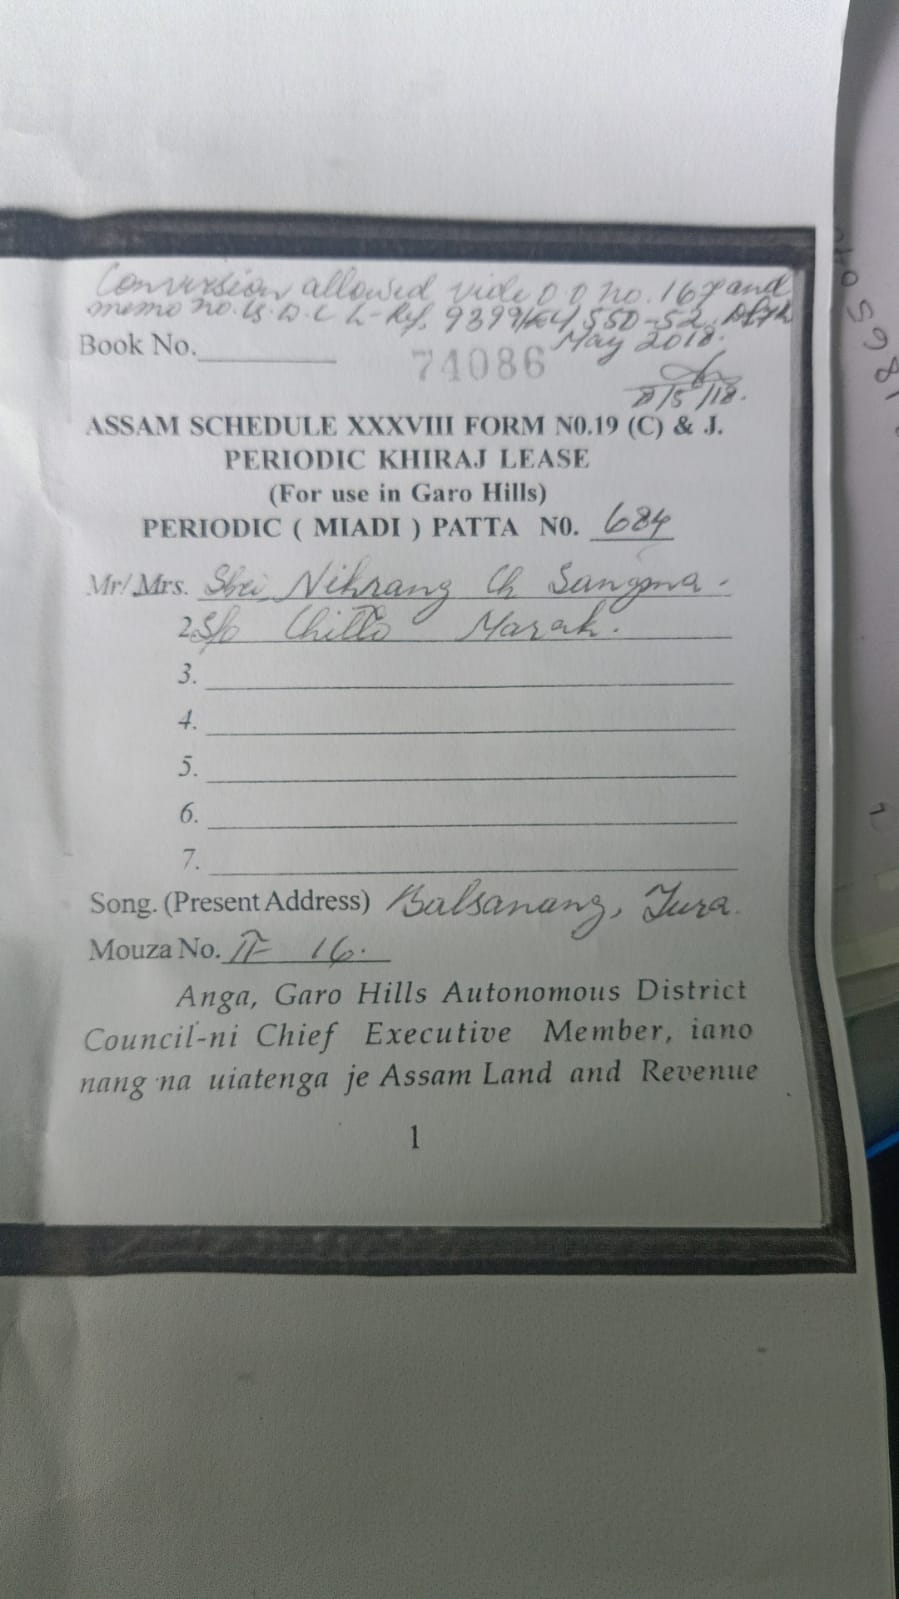 Conversion allowed vide O.O no. 167 and
memo no. G.D.C L-Ref. 9399
May 2018.
Book No.
74086
8/5/18.
ASSAM SCHEDULE XXXVIII FORM N0.19 (C) & J.
PERIODIC KHIRAJ LEASE
(For use in Garo Hills)
PERIODIC ( MIADI ) PATTA N0. 684
Mr/Mrs. Shri Nikrang Ch Sangma.
2. S/o Chitto Marak.
3.
4.
5.
6.
7.
Song. (Present Address) Balsanang, Tura.
Mouza No. 16.
Anga, Garo Hills Autonomous District
Council-ni Chief Executive Member, iano
nang·na uiatenga je Assam Land and Revenue
1